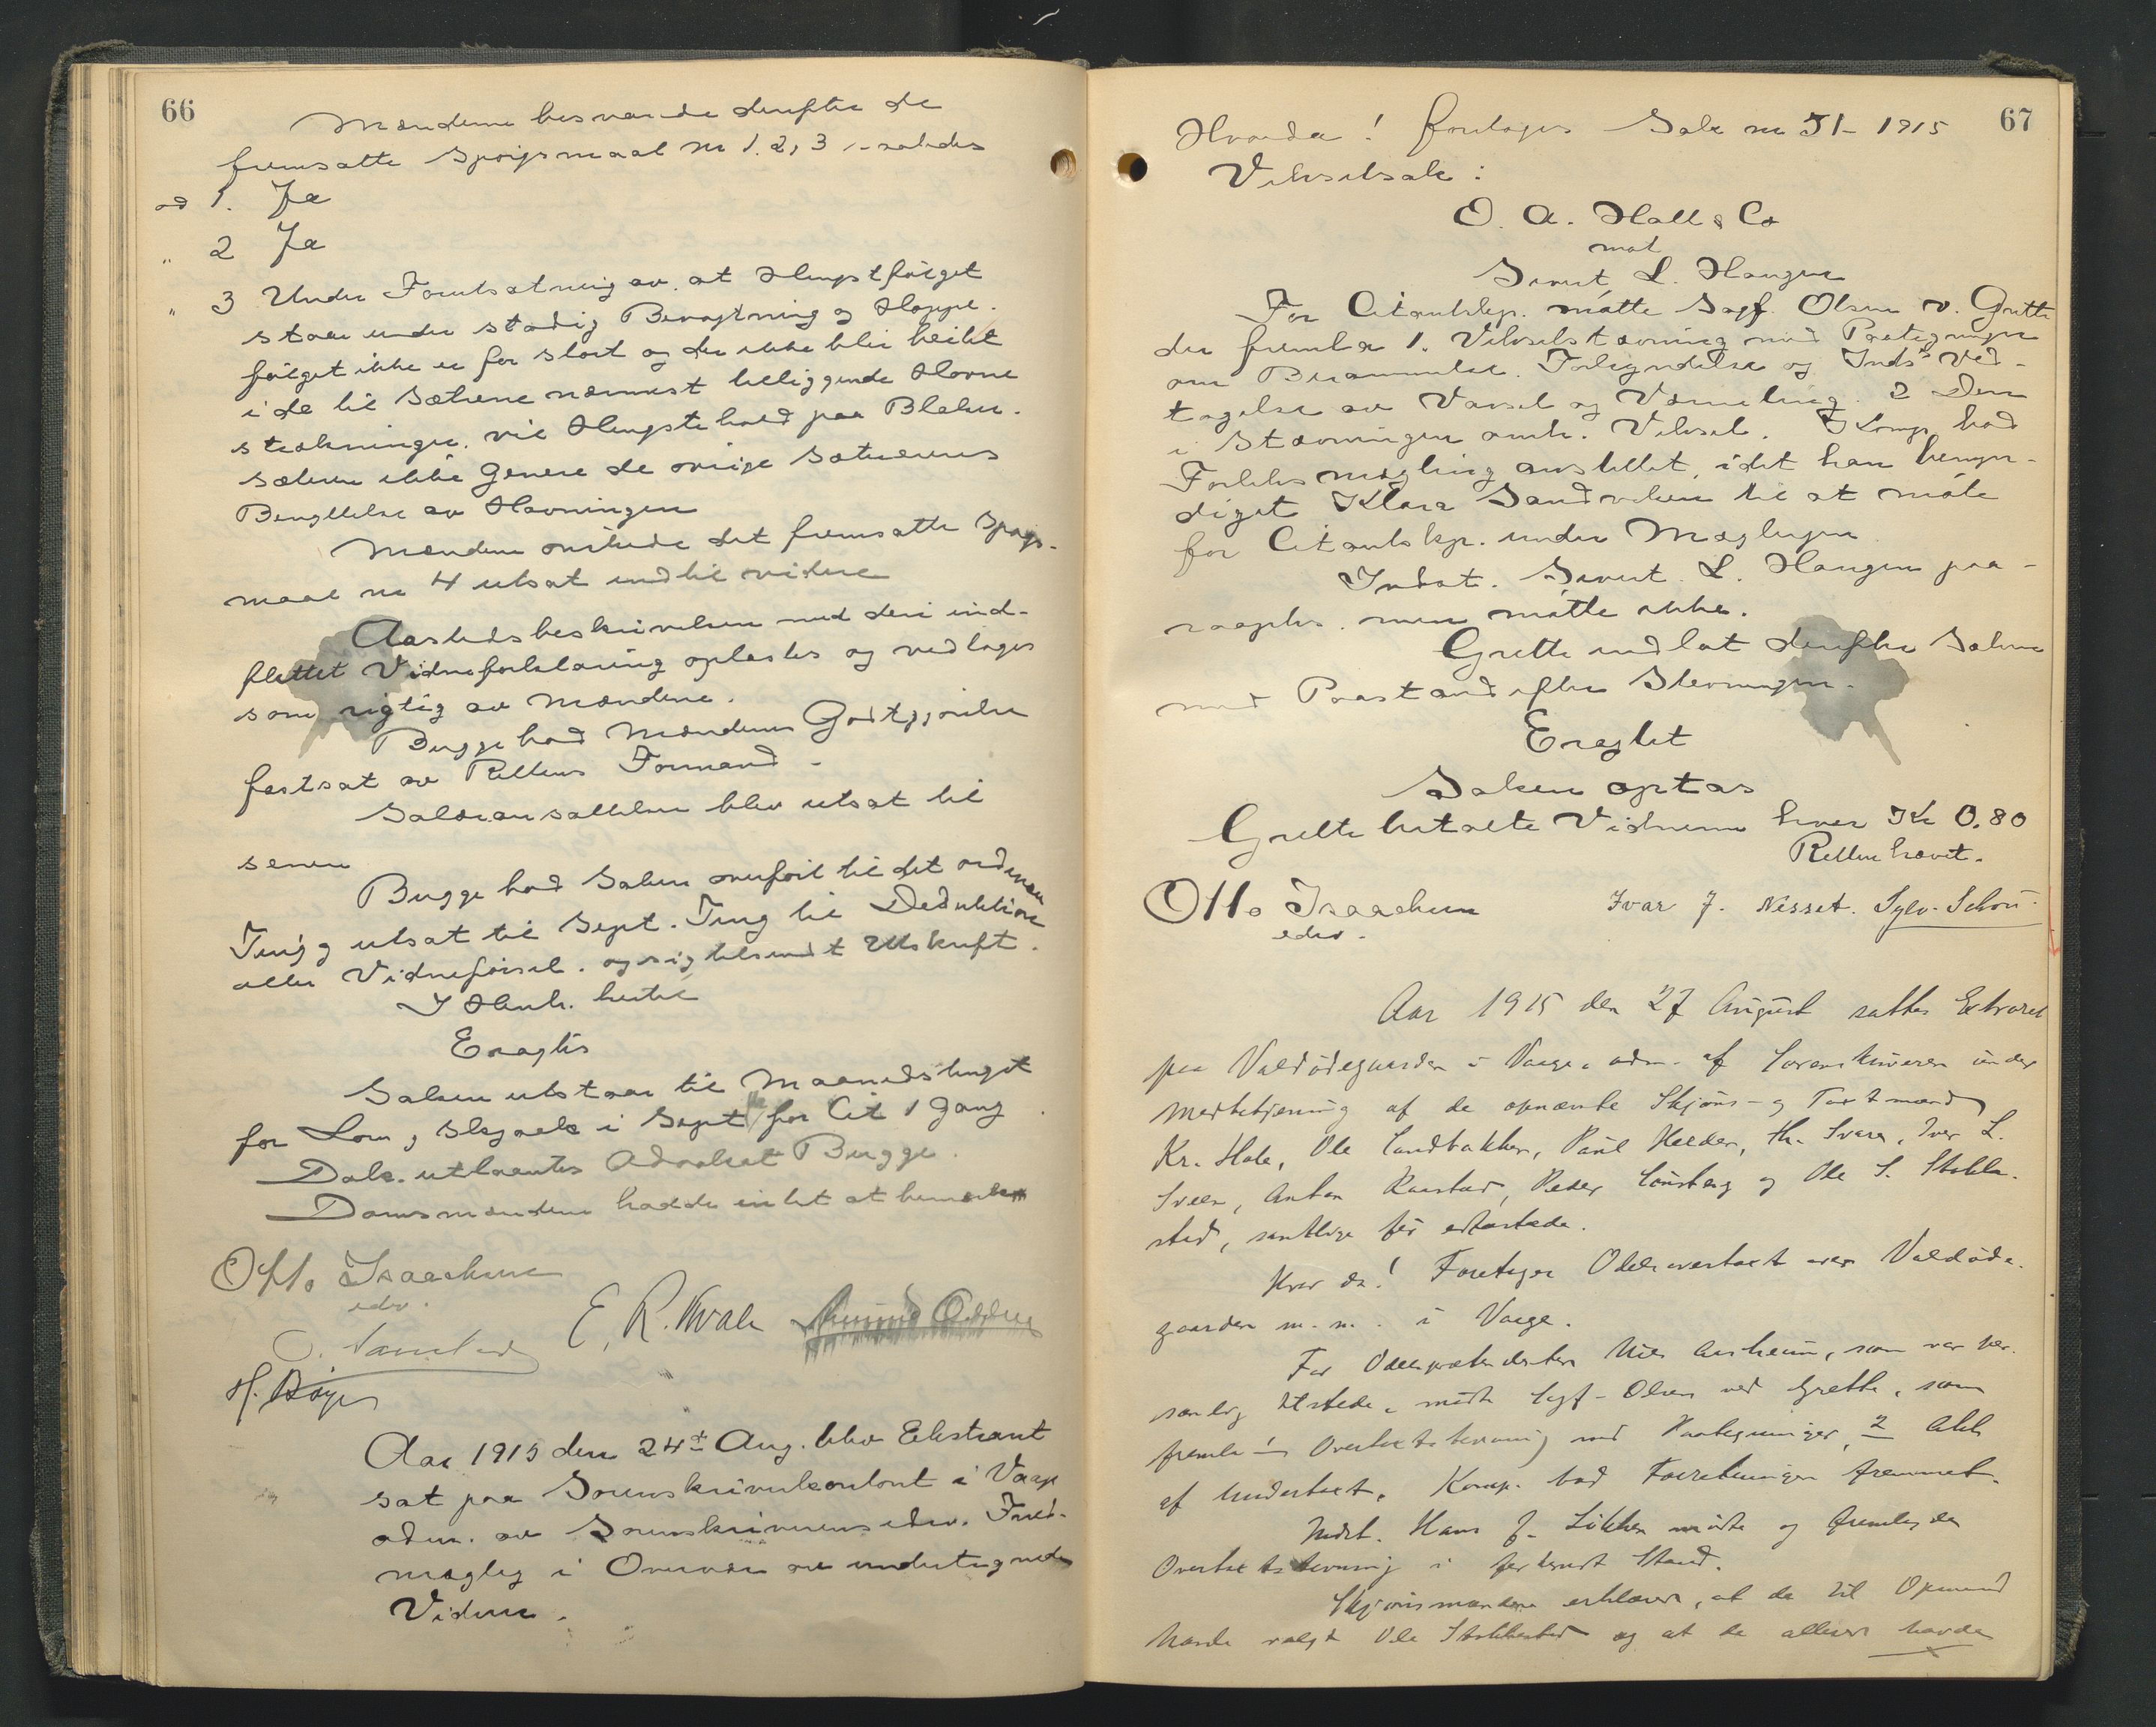 66
Mændene besvarede derefter de
fremsatte Spørgsmaal nr 1. 2, 3 saaledes
ad 1. Ja
" 2 Ja
" 3 Under Forutsætning av at Hengstføiget
staar under stadig Bevogtning og Hoppe-
føiget ikke er for stort og der ikke blir beitet
i de til Sætrene nærmest beliggende Havne
strækninger. vil Hengstehold paa Bleken-
sæteren ikke genere de øvrige Sætereieres
Benyttelse av Havningen
Mændene ønskede det fremsatte Spørgs-
maal nr 4 utsat indtil videre
Aastedsbeskrivelsen med deri ind-
flettet Vidneforklaring oplæstes og vedtoges
som rigtig av Mændene.
Bugge bad Mændenes Godtgjørelse
fastsat av Rettens Formand -
Salæransættelsen blev utsat til
senere
Bugge bad Saken overført til det ordinære
Ting og utsat til Sept. Ting til Deduktion
eller Vidneførsel. og sig tilsendt Utskrift.
I Henh. hertil
Eragtes
Saken utstaar til Maanedstinget
for Lom og Skjaak i Sept for Cit 1 Gang
Dok. utlaantes Advokat Bugge.
Domsmændene hadde intet at bemærke
Otto Isaachsen
edsv.
E. R. Kvale
H. Bøye
Aar 1915 den 24de Aug. blev Ekstraret
sat paa Sorenskriverkontoret i Vaage
adm. av Sorenskriverens edsv. Fuld-
mægtig i Overvær av undertegnede
Vidner.
67
Hvorda! foretoges Sak nr 31 - 1915
Vekselsak:
O. A. Hall & Co
mot
Sivert L. Haugen
For Citantskp. møtte Sagf. Olsen v. Grette
der fremla 1. Vekselstævning med Paategninger
om Berammelse. Forkyndelse og Indst Ved-
tagelse av Varsel og Værneting. 2 Den
i Stævningen omh. Veksel. Komp. bad
Forliksmægling anstillet, idet han bemyn-
diget Klara Sandviken til at møte
for Citantskp. under Mæglingen
Indst. Sivert L. Haugen paa-
raaptes. men møtte ikke.
Grette indlot derefter Saken
med Paastand efter Stevningen.
Eragtet
Saken optas
Grette betalte Vidnerne hver Kr 0,80
Retten hævet.
Otto Isaachsen
edsv.
Ivar J. Nesset. Sylv. Schou
Aar 1915 den 27 August sattes Extraret
paa Valdødegaarden i Vaage, adm. af Sorenskriveren under
Medbetjening af de opnævnte Skjøns- og Taxtmænd
Kr. Hole, Ole Sandbakken, Paul Heldor, Th. Svare, Iver L.
Sveen, Anton Raastad, Peder Lunsberg og Ole S. Stokke-
stad, samtlige før edfæstede.
Hvor da! Foretoges Odelsovertaxt over Valdøde-
gaarden m. m. i Vaage.
For Odelsprætendenten Nils Aasheim, som var per-
sonlig tilstede, mødte Sagf. Olsen ved Grette, som
fremla 1 Overtaxtstevning med Paategninger, 2 Akt
af Undertaxt. Komp. bad Forretningen fremmet.
Indst. Hans J. Løkken mødte og fremlagde
Overtaxtstevning i forkyndt Stand.
Skjønsmændene erklærede, at de til Opmand
havde valgt Ole Stokkestad og at de allesen havde